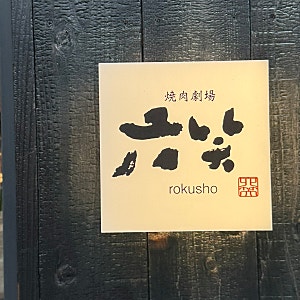 焼肉劇場
六笑
rokusho